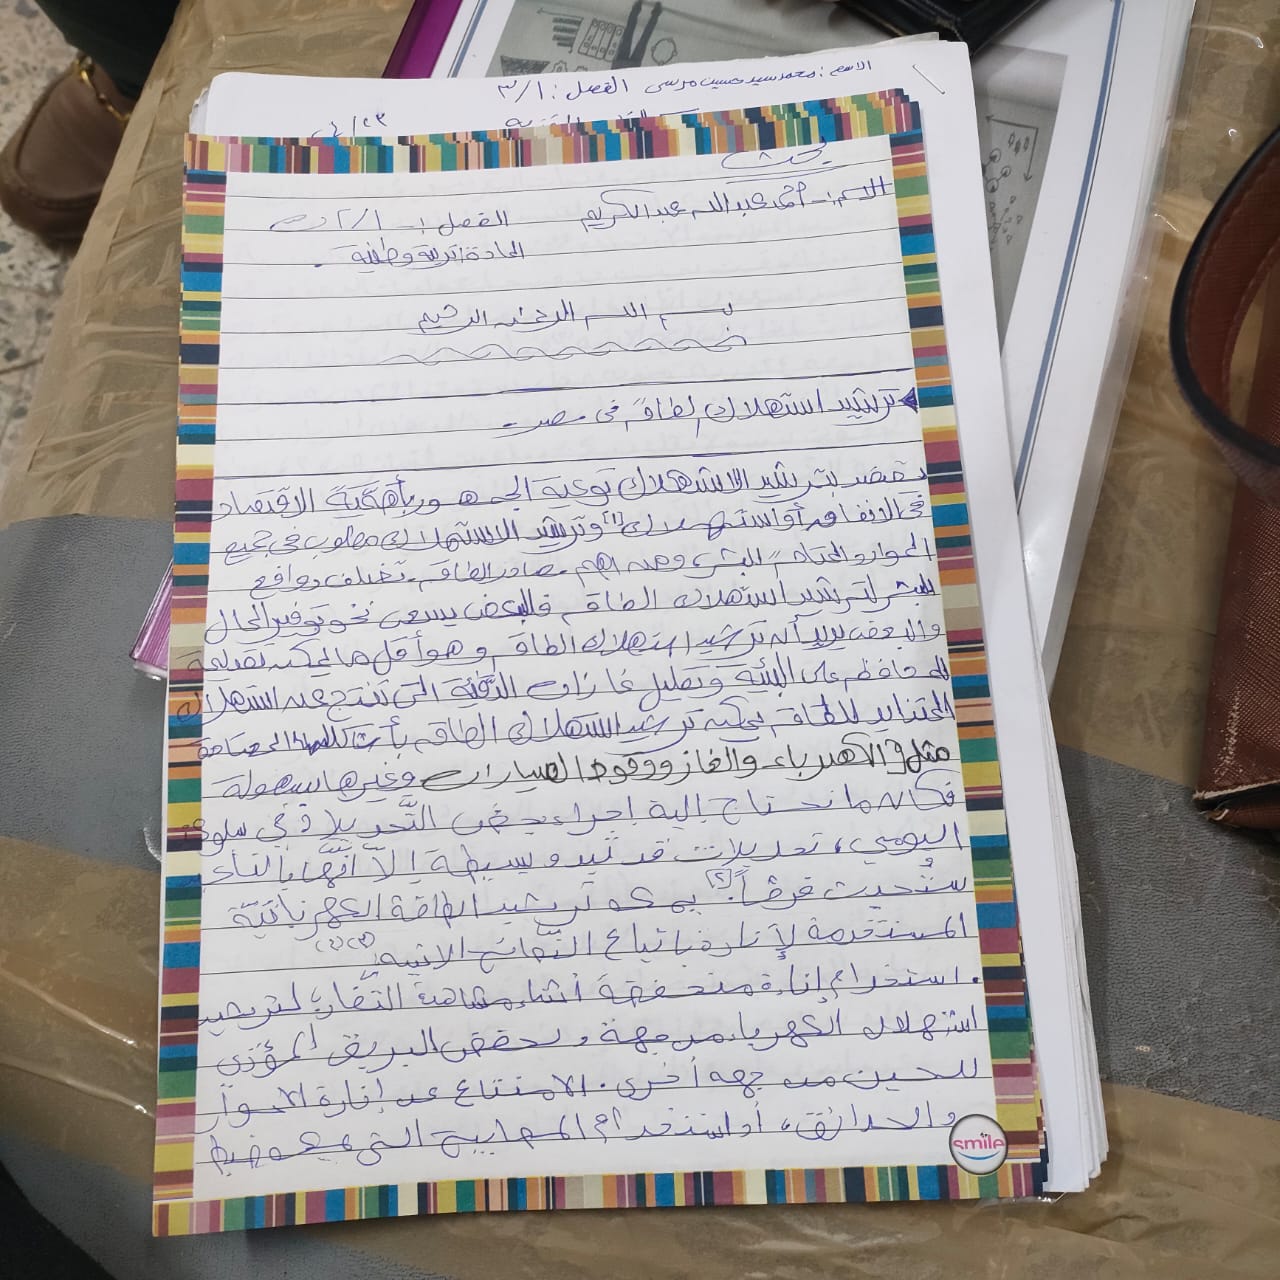 الاسم: محمد سيد حسين مرسى الفصل: ٣/١
بحث
الاسم:- احمد عبد الله عبد الكريم الفصل:- ٢/١
المادة: تربية وطنية.
بسم الله الرحمن الرحيم
ترشيد استهلاك لطاقة فى مصر.
يقصد بترشيد الاستهلاك توعية الجمهور بأهمية الاقتصاد
فى الانفاق أو استهلاك (١) وترشيد الاستهلاك مطلوب فى جميع
الموارد المتاحة للبشر ومن اهم مصادر الطاقة. تختلف دوافع
البشر لترشيد استهلاك الطاقة فالبعض يسعى نحو توفير المال
والبعض يرى أن ترشيد استهلاك الطاقة وهو أقل ما يمكن تقديمة
للمحافظة على البيئة وتقليل غازات الدفيئة التى تنتج عن استهلاك
المتزايد للطاقة يمكن ترشيد استهلاك الطاقة بأشكالها المتاحة
مثل الكهرباء والغاز ووقود السيارات وغيرها بسهولة
فكل ما نحتاج إلية اجراء بعض التعديلات فى سلوك
اليومي، تعديلات قد تبدو بسيطة إلا أنها بالتأكيد
ستحدث فرقاً. (٢) يمكن ترشيد الطاقة الكهربائية
المستخدمة لإنارة باتباع النصائح الاتية: (٣) (٤)
. استخدام إنارة منخفضة أثناء مشاهدة التلفاز لترشيد
استهلاك الكهرباء من جهة ولخفض البريق المؤذي
للعين من جهه أخرى. الامتناع عن إنارة الاسوار
والحدائق، أو استخدام المصابيح التى
smile